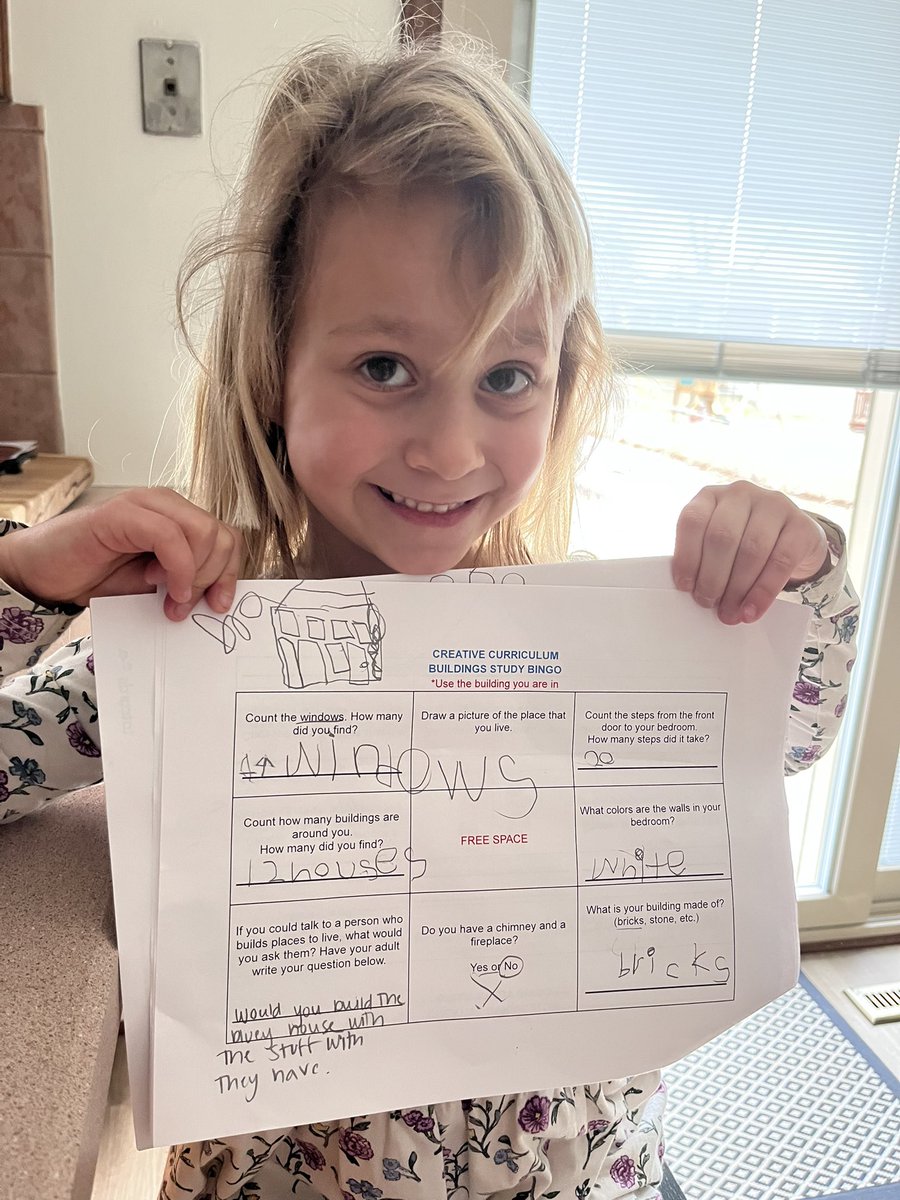 CREATIVE CURRICULUM
BUILDINGS STUDY BINGO
*Use the building you are in
Count the windows. How many
did you find?
14 WINDOWS
Draw a picture of the place that
you live.
Count the steps from the front
door to your bedroom.
How many steps did it take?
20
Count how many buildings are
around you.
How many did you find?
12 houses
FREE SPACE
What colors are the walls in your
bedroom?
white
If you could talk to a person who
builds places to live, what would
you ask them? Have your adult
write your question below.
Would you build The
bluey house with
The stuff with
They have.
Do you have a chimney and a
fireplace?
Yes or No
X
What is your building made of?
(bricks, stone, etc.)
bricks